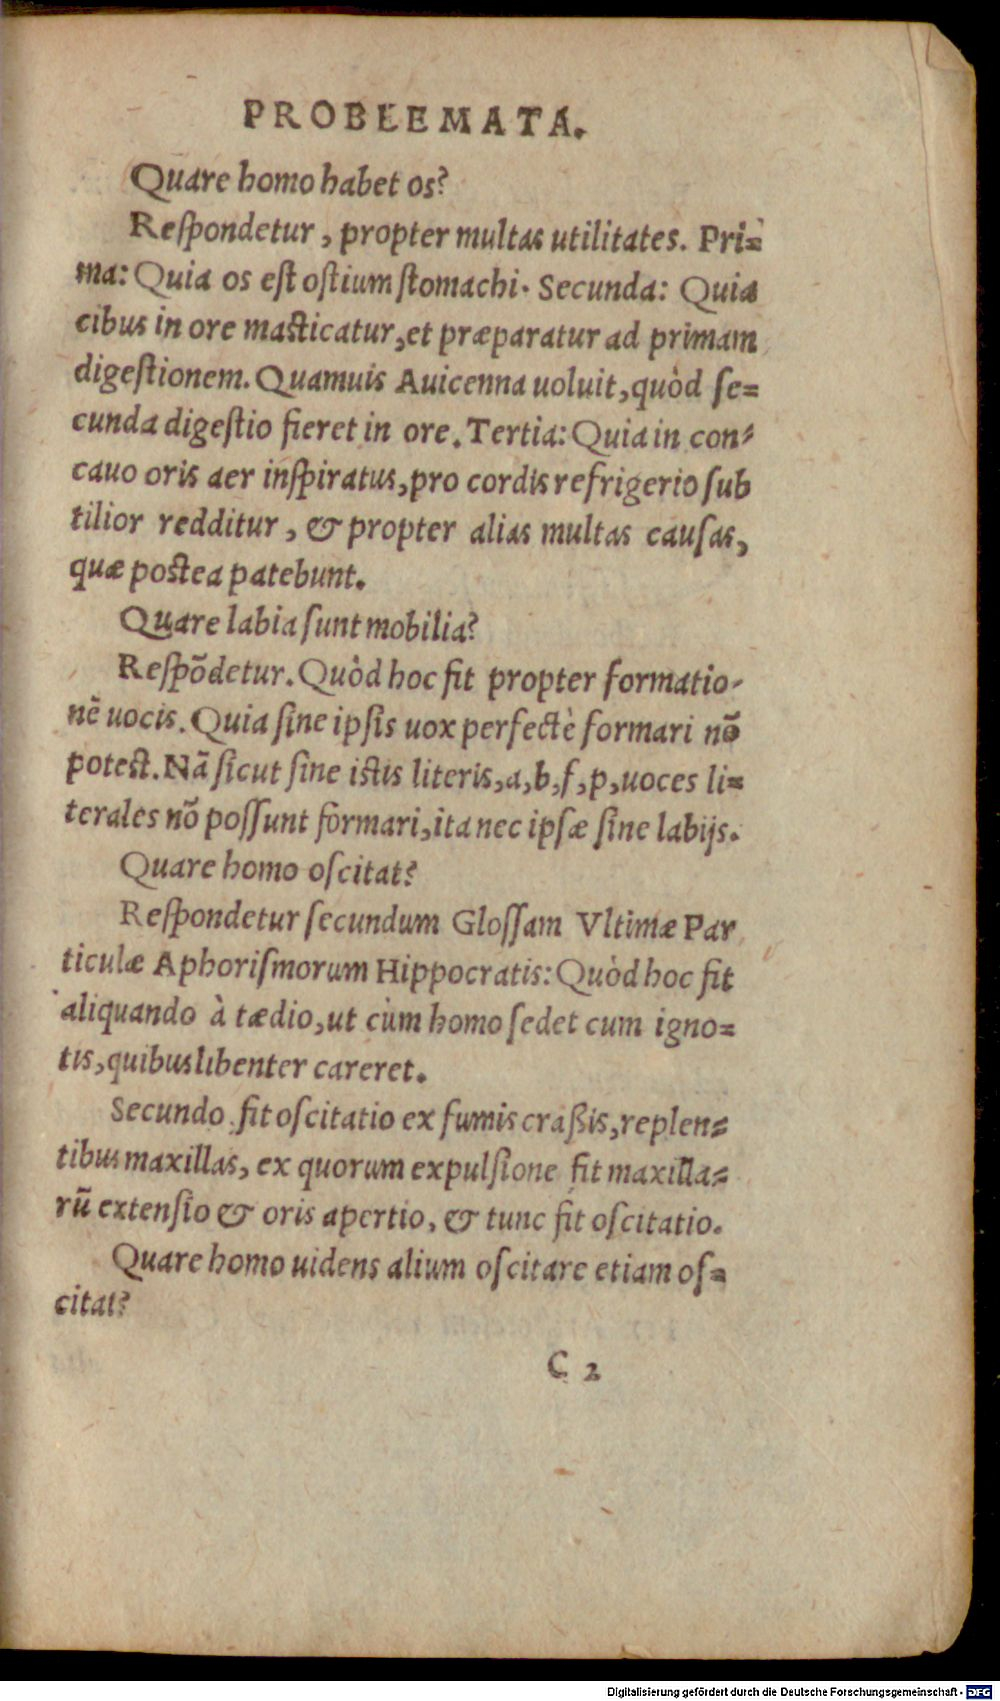 PROBLEMATA.
Quare homo habet os?
Reſpondetur, propter multas utilitates. Pri=
ma: Quia os eſt oſtium ſtomachi. Secunda: Quia
cibus in ore maſticatur, et præparatur ad primam
digeſtionem. Quamuis Auicenna uoluit, quòd ſe=
cunda digeſtio fieret in ore. Tertia: Quia in con=
cauo oris aer inſpiratus, pro cordis refrigerio ſub
tilior redditur, & propter alias multas cauſas,
quæ poſtea patebunt.
Quare labia ſunt mobilia?
Reſpõdetur. Quòd hoc fit propter formatio-
nẽ uocis. Quia ſine ipſis uox perfectè formari nõ
poteſt. Nã ſicut ſine iſtis literis, a, b, f, p, uoces li=
terales nõ poſſunt formari, ita nec ipſæ ſine labijs.
Quare homo oſcitat?
Reſpondetur ſecundum Gloſſam Vltimæ Par
ticulæ Aphoriſmorum Hippocratis: Quòd hoc fit
aliquando à tædio, ut cùm homo ſedet cum igno=
tis, quibus libenter careret.
Secundo fit oſcitatio ex fumis craßis, replen=
tibus maxillas, ex quorum expulſione fit maxilla=
rũ extenſio & oris apertio, & tunc fit oſcitatio.
Quare homo uidens alium oſcitare etiam oſ=
citat?
C 2
Digitalisierung gefördert durch die Deutsche Forschungsgemeinschaft - DFG